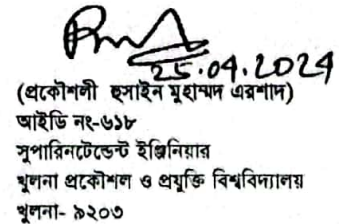 25.04.2024
(প্রকৌশলী হুসাইন মুহাম্মদ এরশাদ)
আইডি নং-৬১৮
সুপারিনটেন্ডেন্ট ইঞ্জিনিয়ার
খুলনা প্রকৌশল ও প্রযুক্তি বিশ্ববিদ্যালয়
খুলনা- ৯২০৩